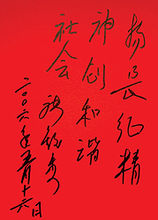 扬长征精
神创和谐
社会
二〇〇六年五月十六日